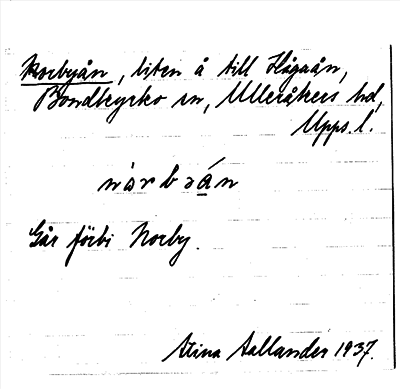 Norbyån, liten å till Hågaån,
Bondkyrko sn, Ulleråkers hd,
Upps. l.
nàrbəán
Går förbi Norby.
Stina Sallander 1937.